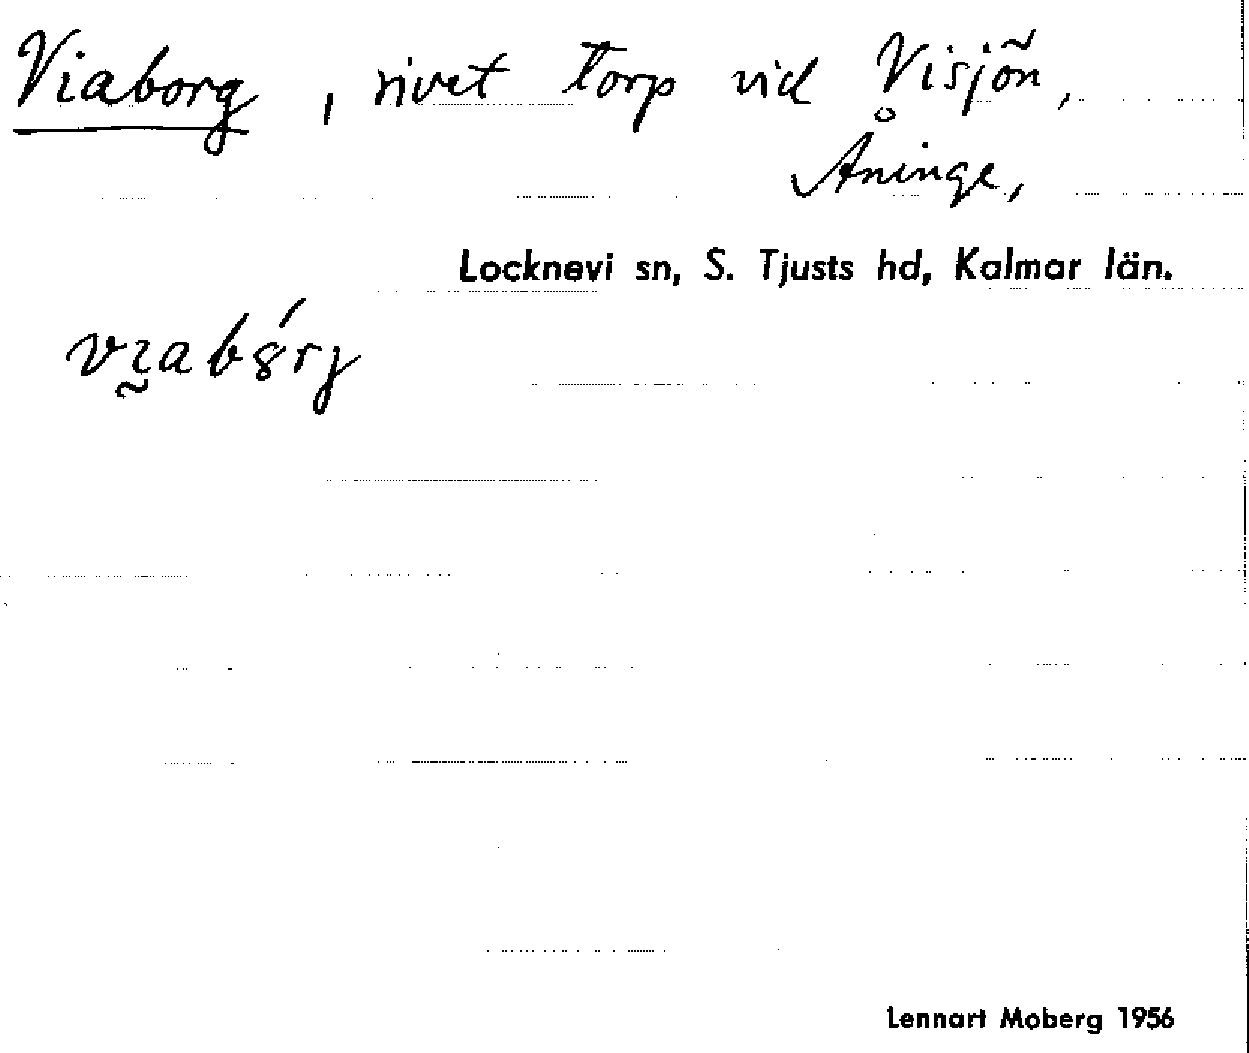 Viaborg, rivet torp vid Visjön,
Åninge,
Locknevi sn, S. Tjusts hd, Kalmar län.
Lennart Moberg 1956